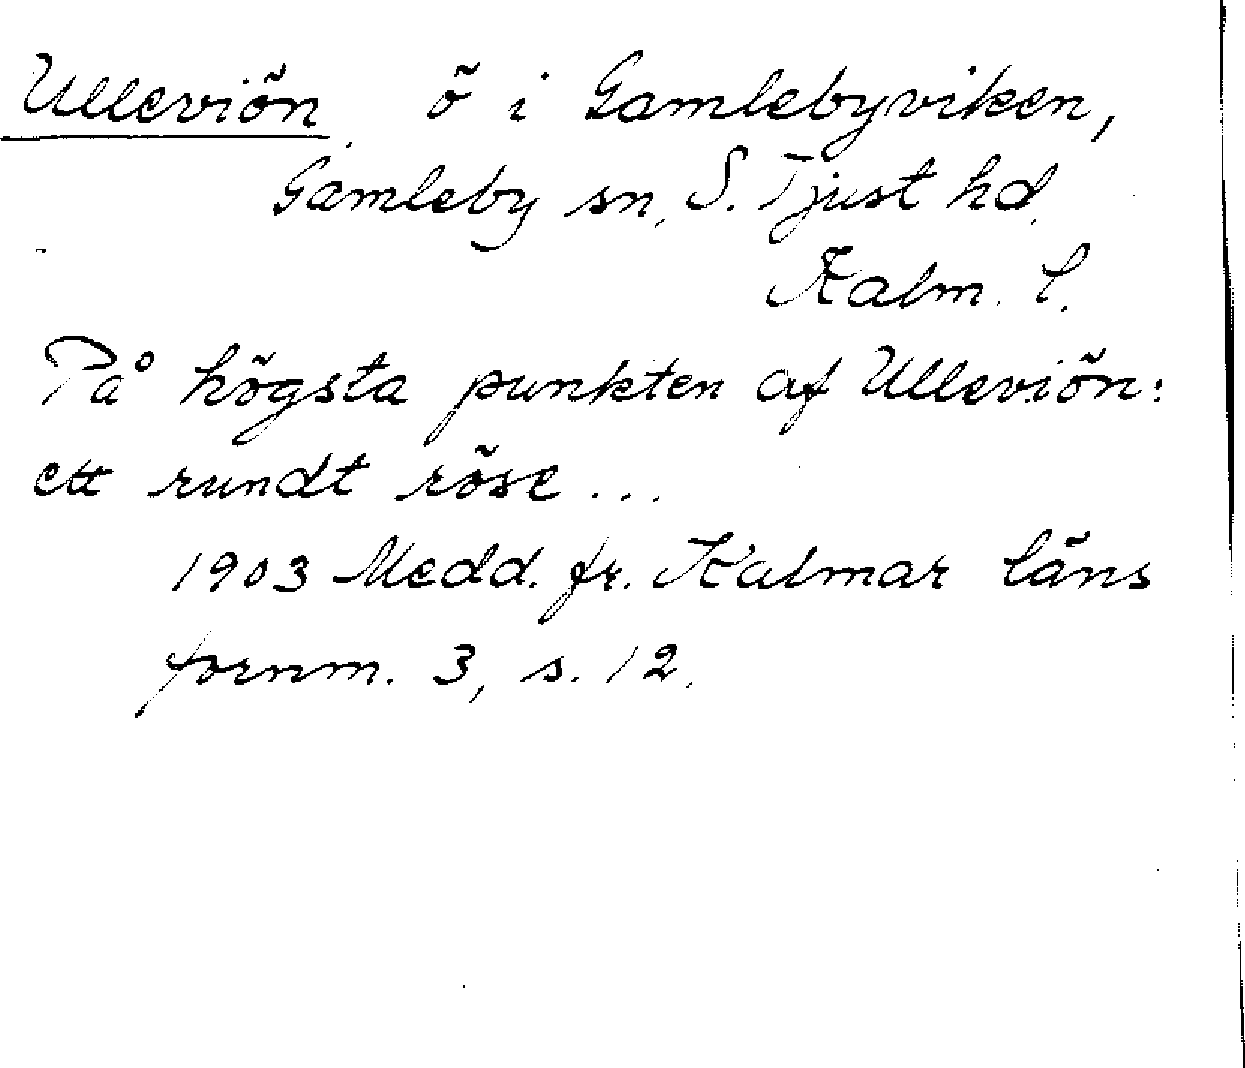 Ulleviön ö i Gamlebyviken,
Gamleby sn, S. Tjust hd.
Kalm. l.
På högsta punkten af Ulleviön:
ett rundt röse...
1903 Medd. fr. Kalmar läns
fornm. 3, s. 12.